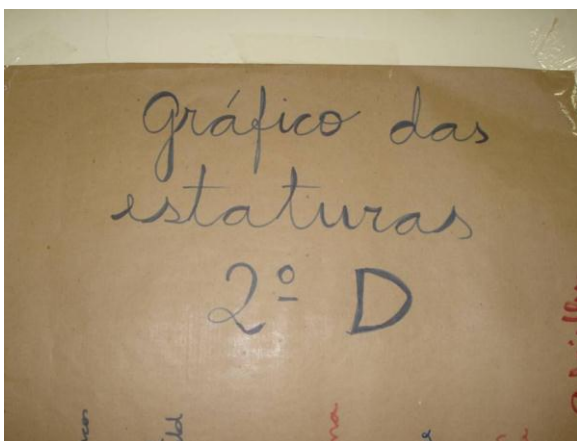 Gráfico das
estaturas
2º D